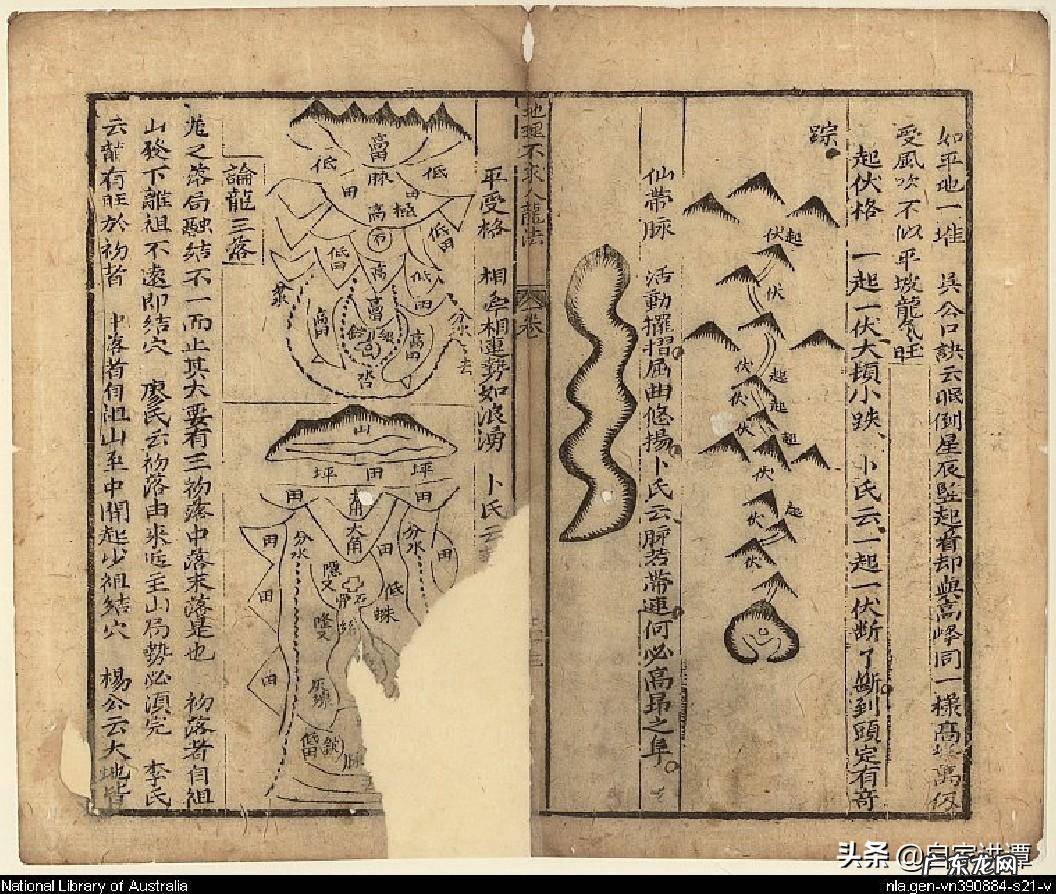 如平地一堆 吳公口訣云眠倒星辰竪起看却與高峰同一樣高峯萬仞
受風吹不似平坡龍氣旺
起伏格 一起一伏大頓小跌 卜氏云一起一伏断了断到頭定有奇
踪
起
伏
伏
伏
起
伏
起
伏
起
伏
起
伏
伏
仙帶脉 活動擺摺屈曲悠揚卜氏云脉若帶連何必高昂之阜
地理不求人龍法
卷
平受格 相牽相連勢如波湧 卜氏云
高
低
脉
低
田
田
高
極
低田
低田
高
低
田
高
分水
去
山
坪
田
坪
田
田
大角
分水
分水
田
田
田
低
田
田
低田
脉
論龍三落
龙之落局融結不一而止其大要有三初落中落末落是也 初落者自祖
山發下離祖不遠即結穴 廖氏云初落由來近主山局勢必須完 李氏
云龍有旺於初者 中落者自祖山至中間起少祖結穴 楊公云大地皆
National Library of Australia
nla.gen-vn390884-s21-v
头条 @自家讲谭
广东龙网